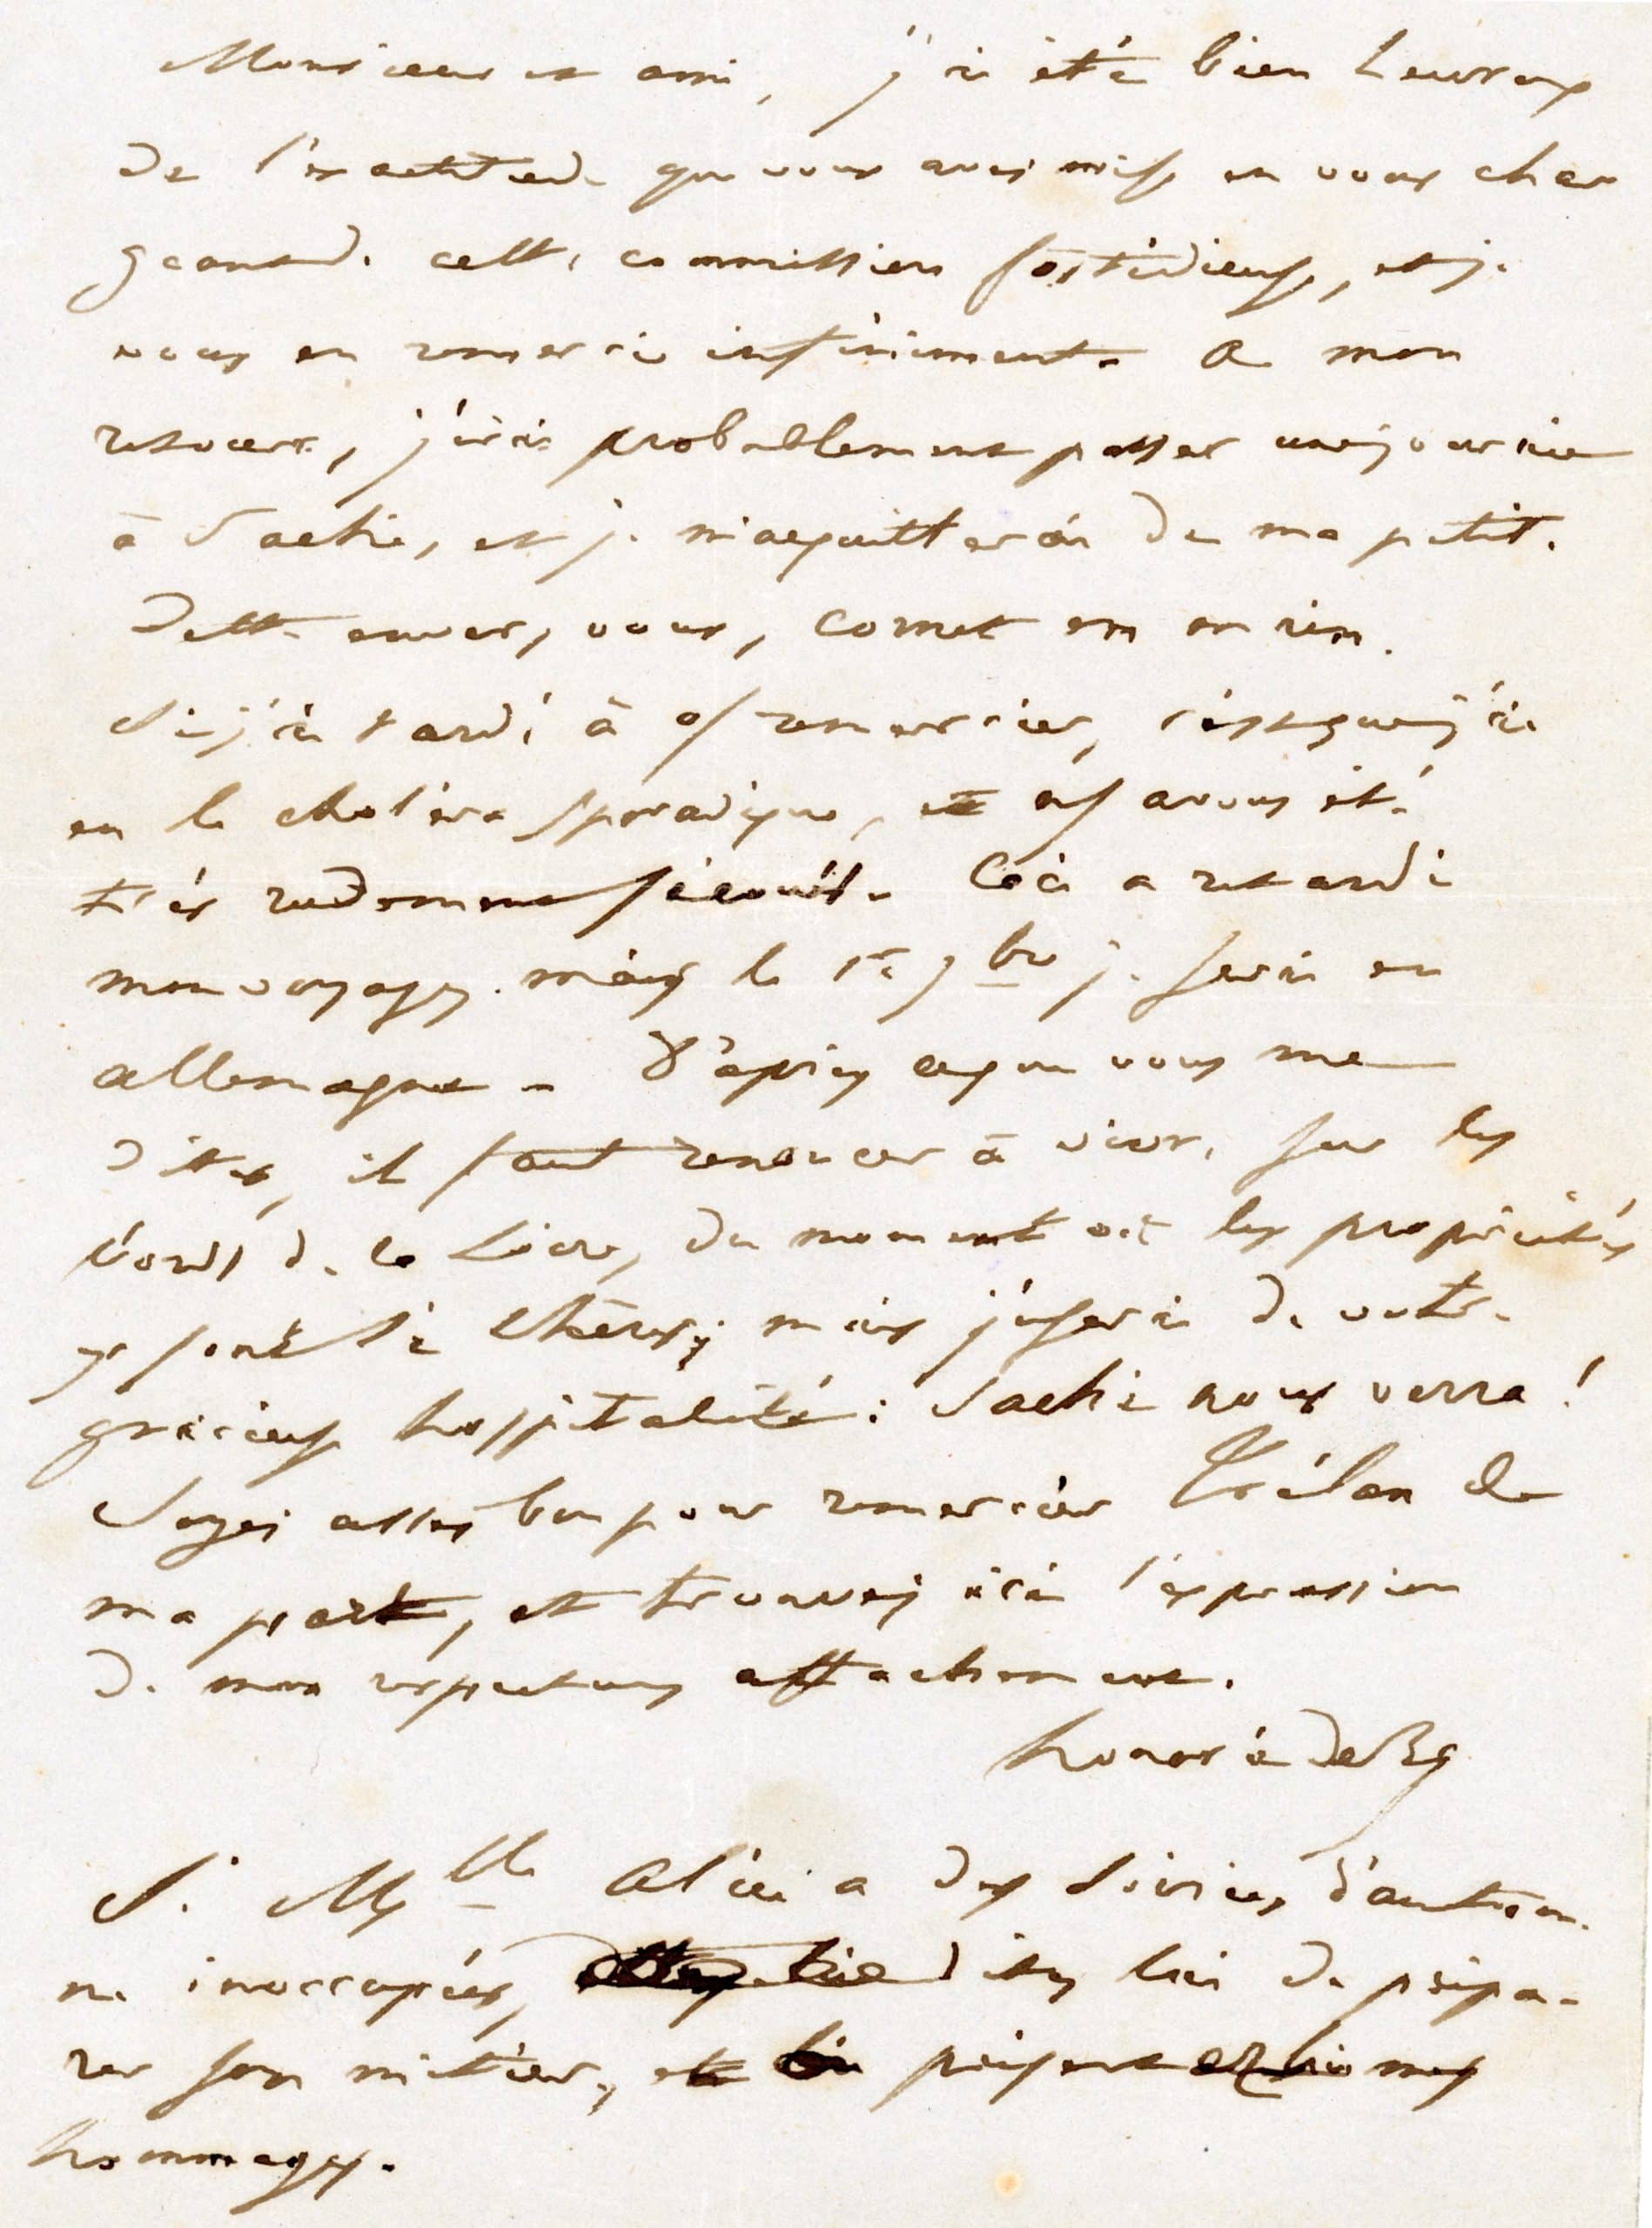 Monsieur et ami, j'ai été bien heureux
de l'exactitude que vous avez mise en vous char
geant de cette commission fastidieuse, et je
vous en remercie infiniment. A mon
retour, j'irai probablement passer une journée
à Saché, et je m'acquitterai de ma petite
dette envers vous, comet en
Si j'ai tardé à remercier, c'est que j'ai
eu le choléra sporadique, et avons été
très rudement secoués. Ceci a retardé
mon voyage. mais le 1er 9bre je serai en
allemagne - D'après ce que vous me
dites, il faut renoncer à vivre sur les
bords de la Loire, du moment où les propriétés
y sont si chères; mais j'userai de votre
gracieuse hospitalité: Saché nous verra!
Soyez assez bon pour remercier Trélan de
ma part, et trouvez ici l'expression
de mon respectueux attachement.
honoré de Bc
Si Mlle Alice a des soirées d'autom
ne inoccupées, dites lui de prépa-
rer son métier, et présentez lui mes
hommages.